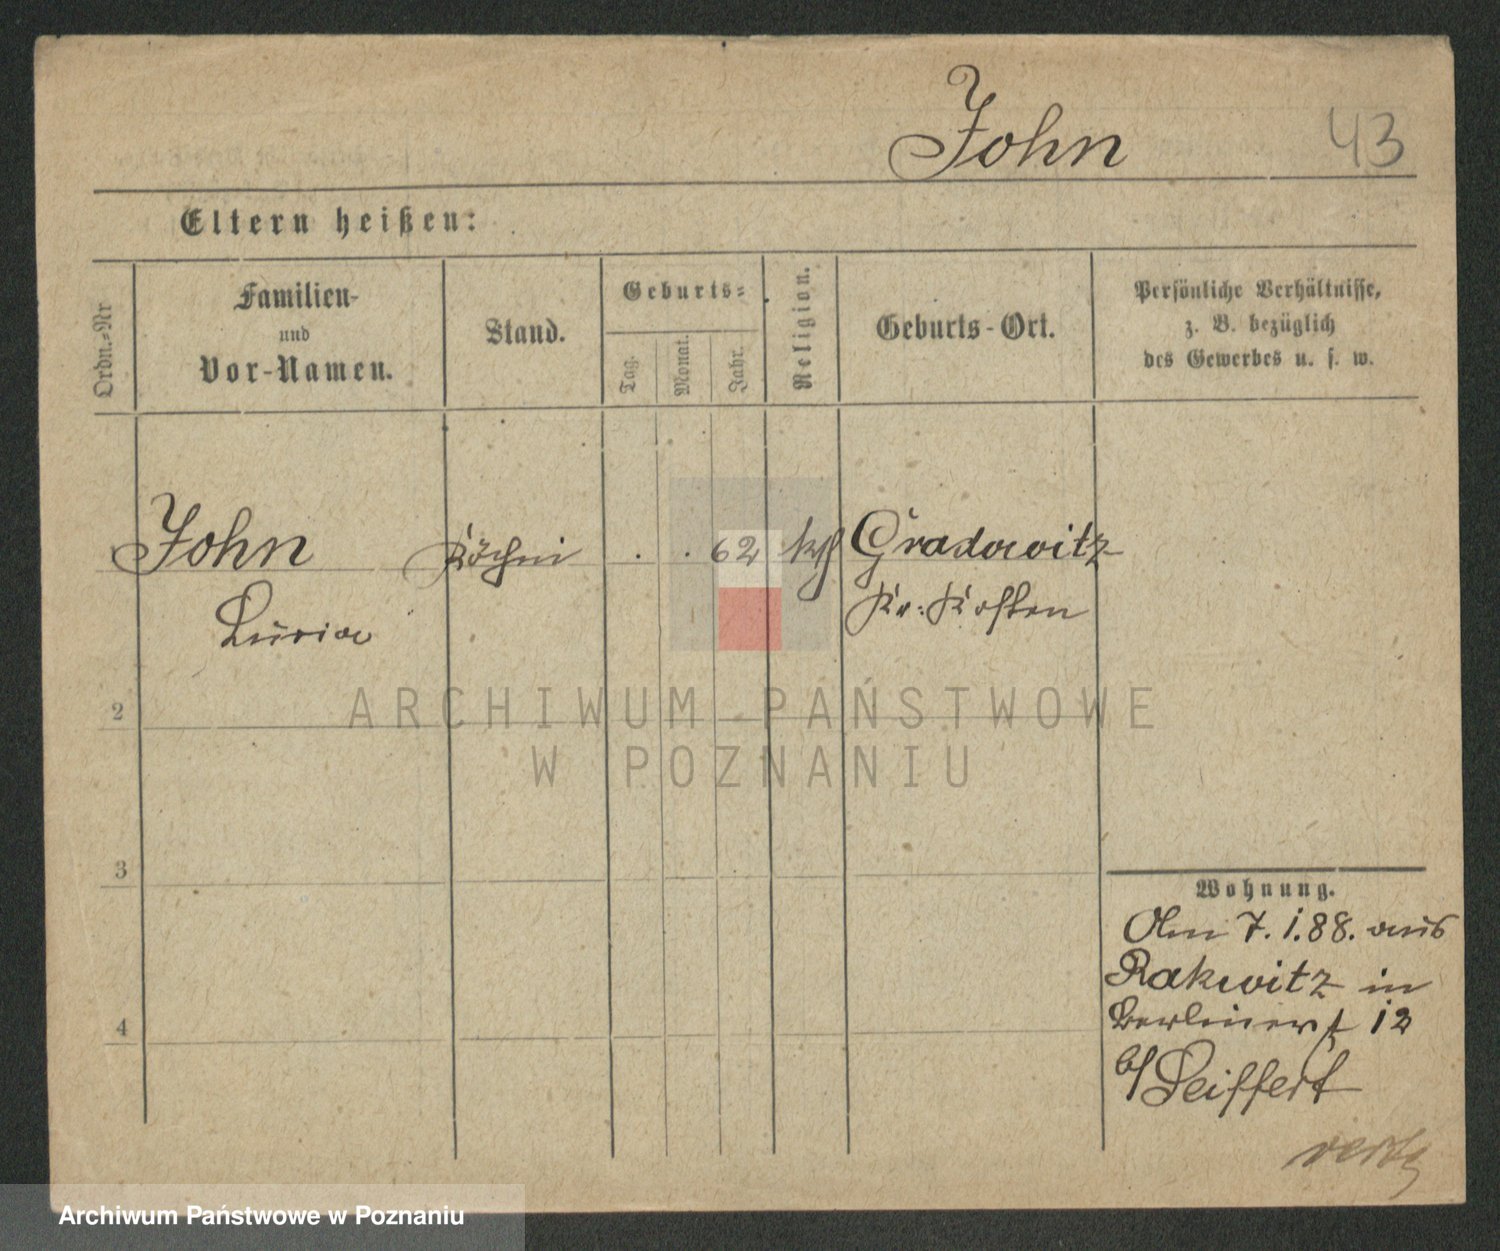 John
43
Eltern heißen:
Ordn.-Nr
Familien-
und
Vor-Namen.
Stand.
Geburts-
Tag.
Monat.
Jahr.
Religion.
Geburts-Ort.
Persönliche Verhältnisse,
z. B. bezüglich
des Gewerbes u. s. w.
John
Köchin
62
kth
Gradowitz
Kr. Kosten
2
ARCHIWUM PAŃSTWOWE
W POZNANIU
3
Wohnung.
Am 7. 1. 88. aus
Rakwitz in
4
Berlinerst 12
b/ Seiffert
Archiwum Państwowe w Poznaniu